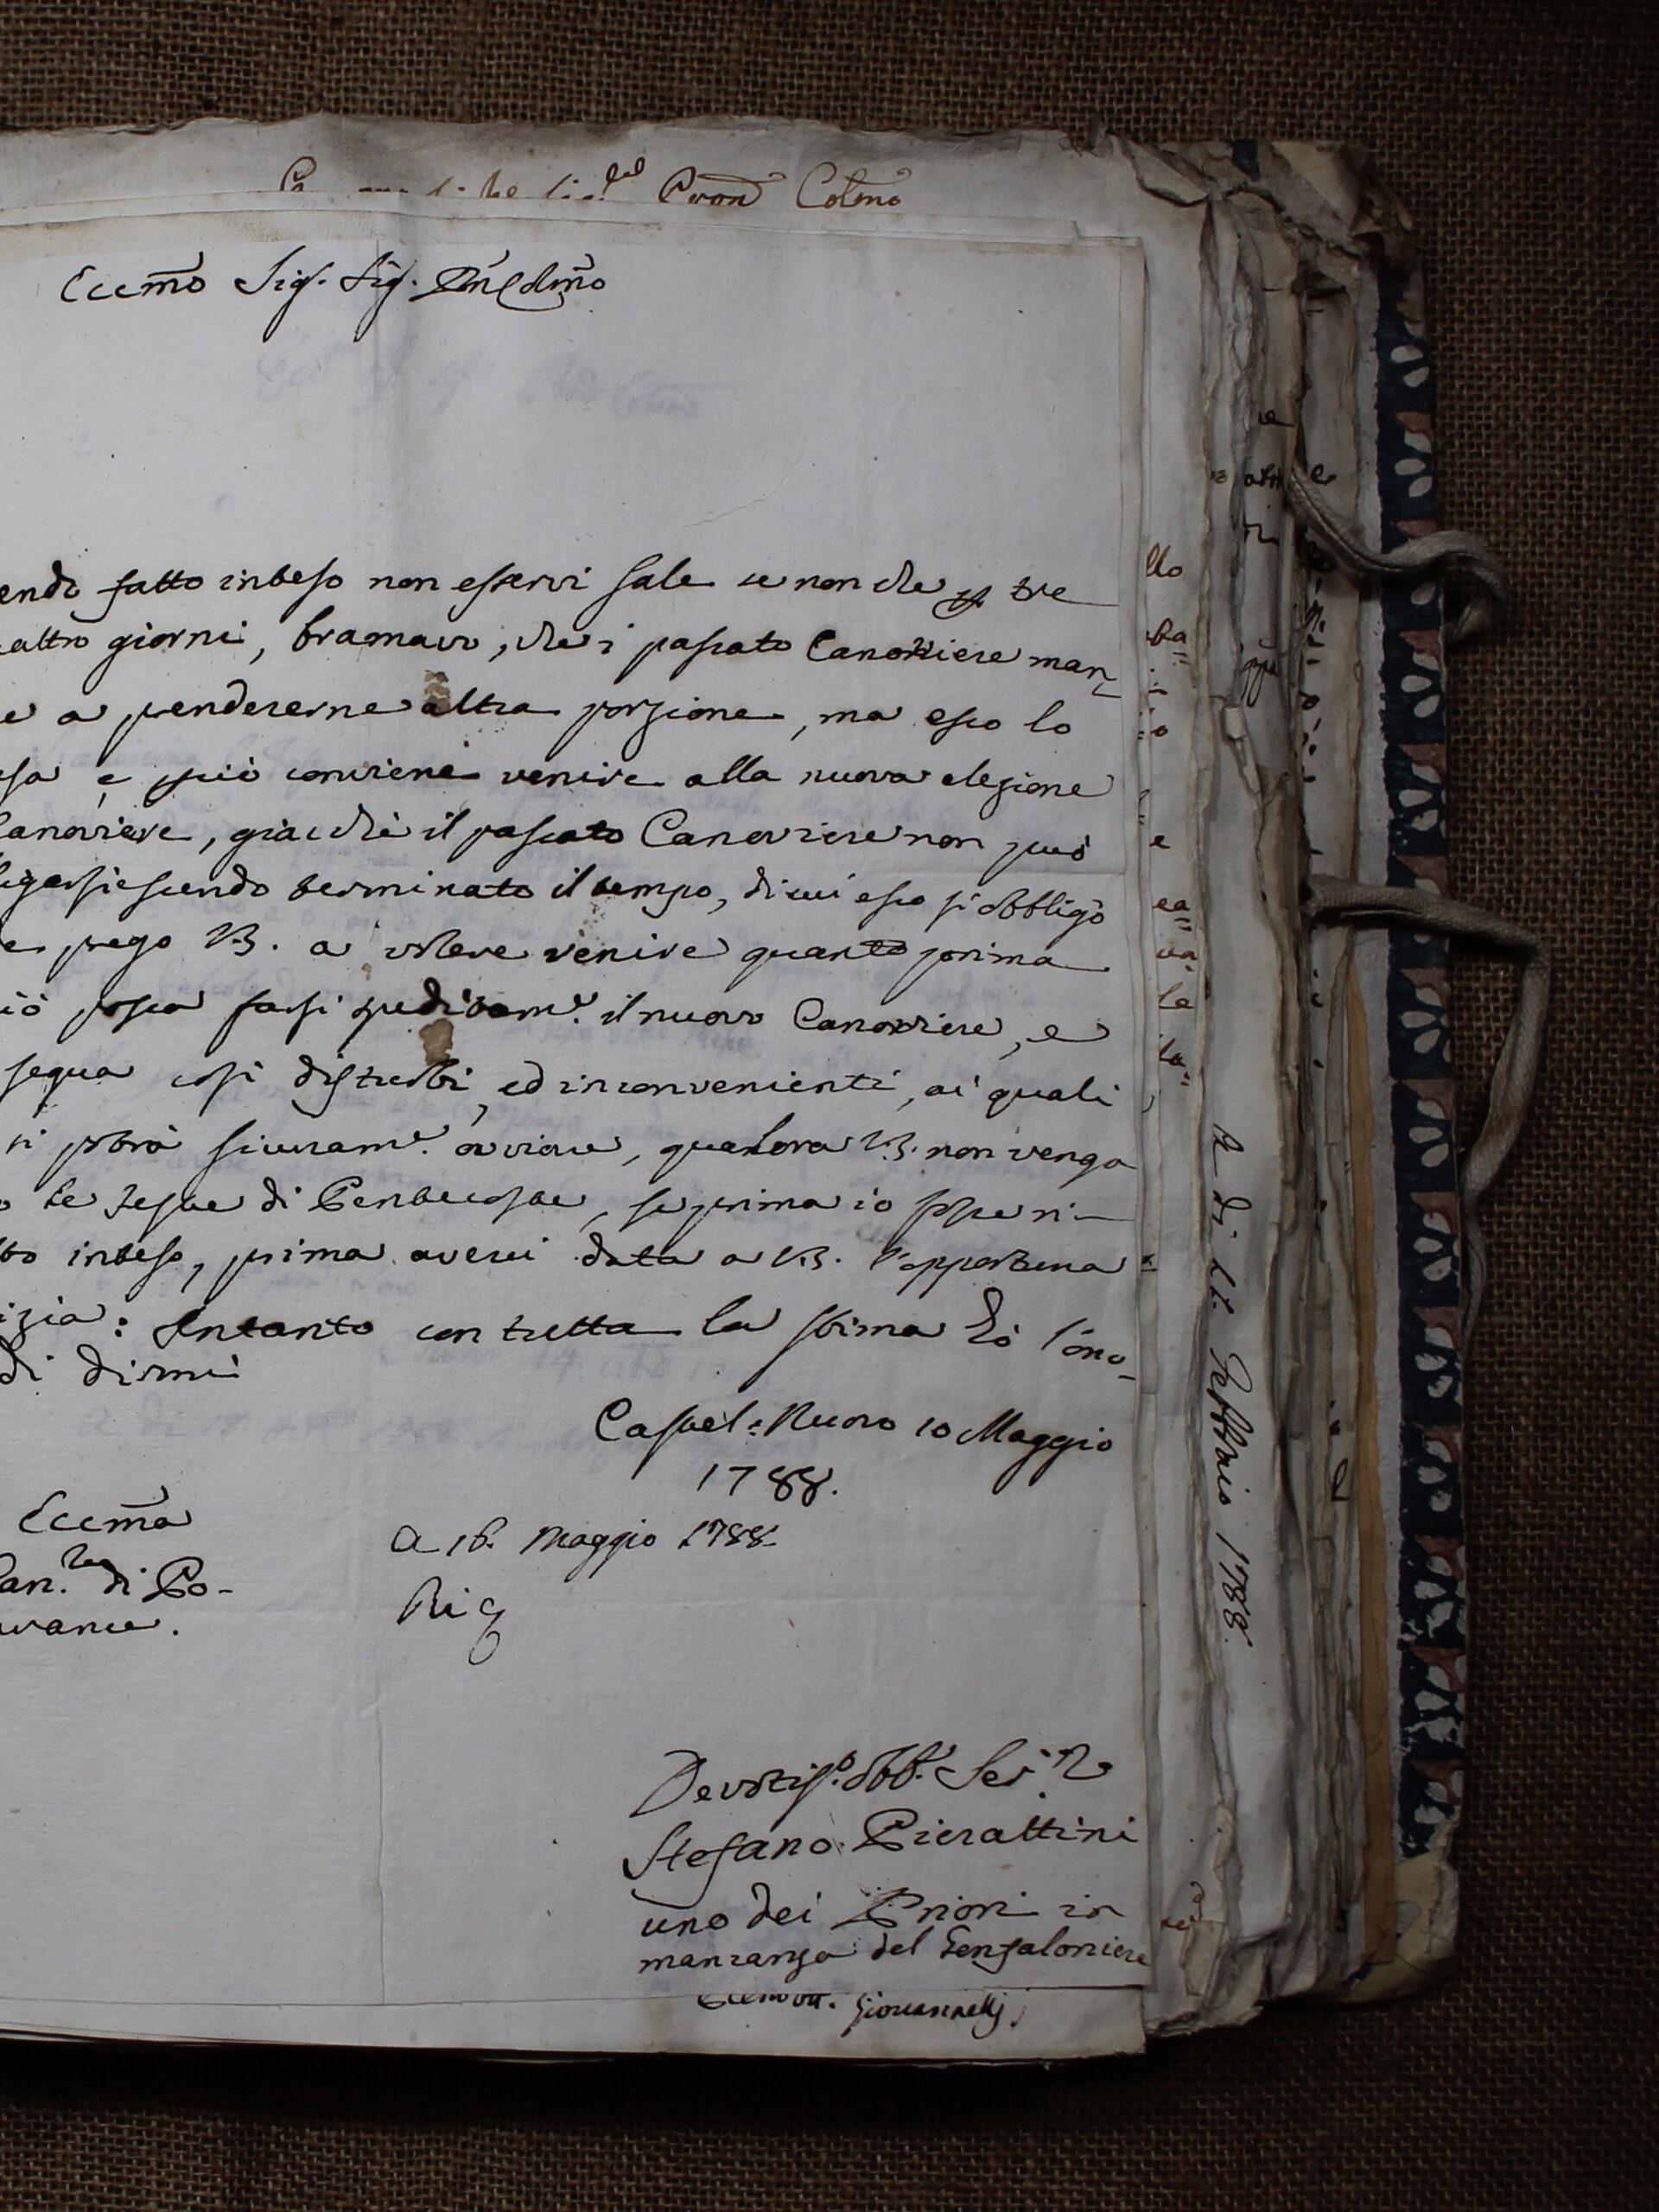 Padron Colmo
Eccmo Sig. Sig. Pne Colmo
endo fatto inteso non esservi sale se non che p tre
attro giorni, bramavo, che i passato Canoviere man-
e a prendererne altra porzione, ma esso lo
sa e più conviene venire alla nuova elezione
Canoviere, giacchè il passato Canoviere non può
ligarsi essendo terminato il tempo, di cui esso si obbligò
e prego V.S. a volere venire quanto prima
iò possa farsi speditam.e il nuovo Canoviere, e
segua così disturbi, ed inconvenienti, ai quali
si potrà sicuram.e ovviare, qualora V.S. non venga
o le feste di Pentecoste, se prima io
to inteso, prima averei data a V.S. l'opportuna
izia: Intanto con tutta la stima hò l'ono-
di dirmi
Castel: Nuovo 10 Maggio
1788.
Eccma
A 16. Maggio 1788
Can.re di Po-
Risp
marance.
Devotis.o Obb. Ser.re
Stefano Pierattini
uno dei Priori in
mancanza del Gonfaloniere
Giovannelli
A di 22. Febbraio 1788.